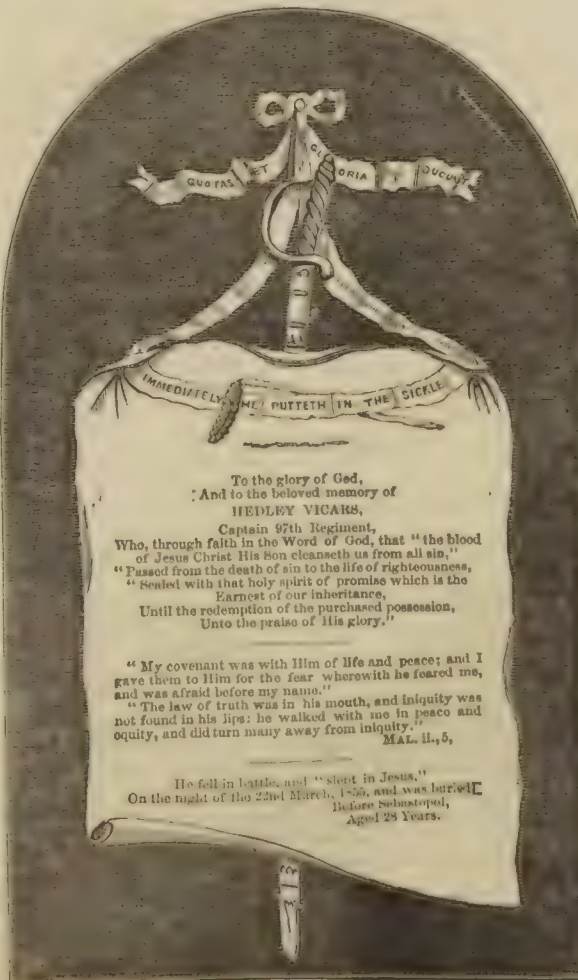 QUO FAS ET GLORIA DUCUNT
IMMEDIATELY HE PUTTETH IN THE SICKLE
To the glory of God,
And to the beloved memory of
HEDLEY VICARS,
Captain 97th Regiment,
Who, through faith in the Word of God, that "the blood
of Jesus Christ His Son cleanseth us from all sin,"
"Passed from the death of sin to the life of righteousness,
"Sealed with that holy spirit of promise which is the
Earnest of our inheritance,
Until the redemption of the purchased possession,
Unto the praise of His glory."
"My covenant was with Him of life and peace; and I
gave them to Him for the fear wherewith he feared me,
and was afraid before my name."
"The law of truth was in his mouth, and iniquity was
not found in his lips: he walked with me in peace and
equity, and did turn many away from iniquity."
MAL. ii., 5,
He fell in battle, and "slept in Jesus,"
On the night of the 22nd March, 1855, and was buried
Before Sebastopol,
Aged 28 Years.